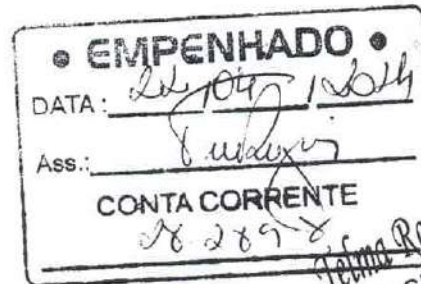 • EMPENHADO •
DATA: 22/04/2014
Ass.:
CONTA CORRENTE
28.289-8
Telma Ro